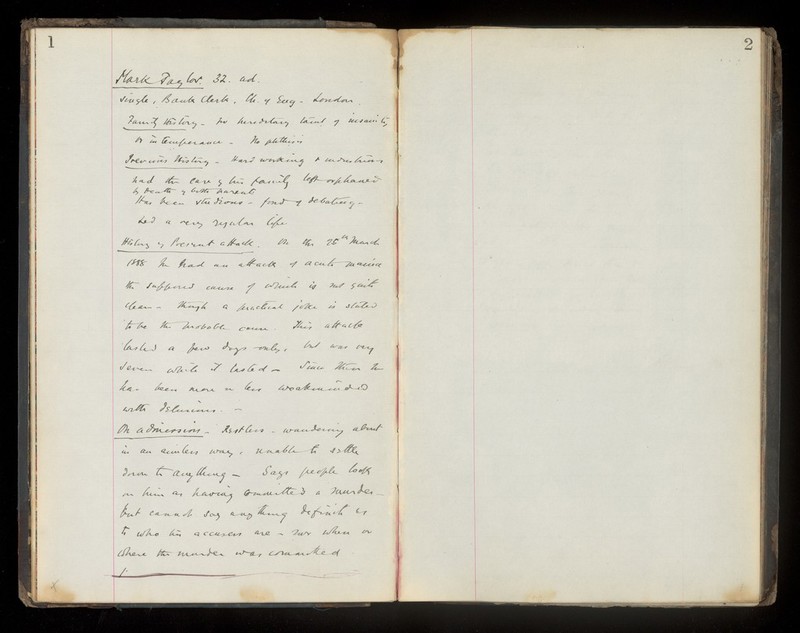 1
Mark Taylor. 32. ad.
Single, Bank Clerk, Ch. of Eng. London.
Family History - No hereditary taint of insanity
or intemperance - No phthisis
Previous History - Hard working & industrious
had the care of his family left orphaned
by death of both parents
Has been studious - fond of debating -
Led a very regular life
History of Present attack. On the 25th March
1888 he had an attack of acute mania
the supposed cause of which is not quite
clear - though a practical joke is stated
to be the probable cause. This attack
lasted a few days only, but was very
severe while it lasted - Since then he
has been more or less weakminded
with delusions. -
On admission - Restless - wandering about
in an aimless way, unable to settle
down to anything - Says people look
on him as having committed a murder -
but cannot say anything definite as
to who his accusers are - nor when or
where the murder was committed
2